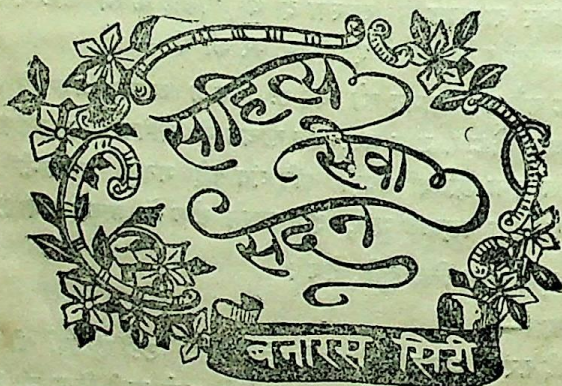 साहित्य
सेवा
सदन
बनारस सिटी